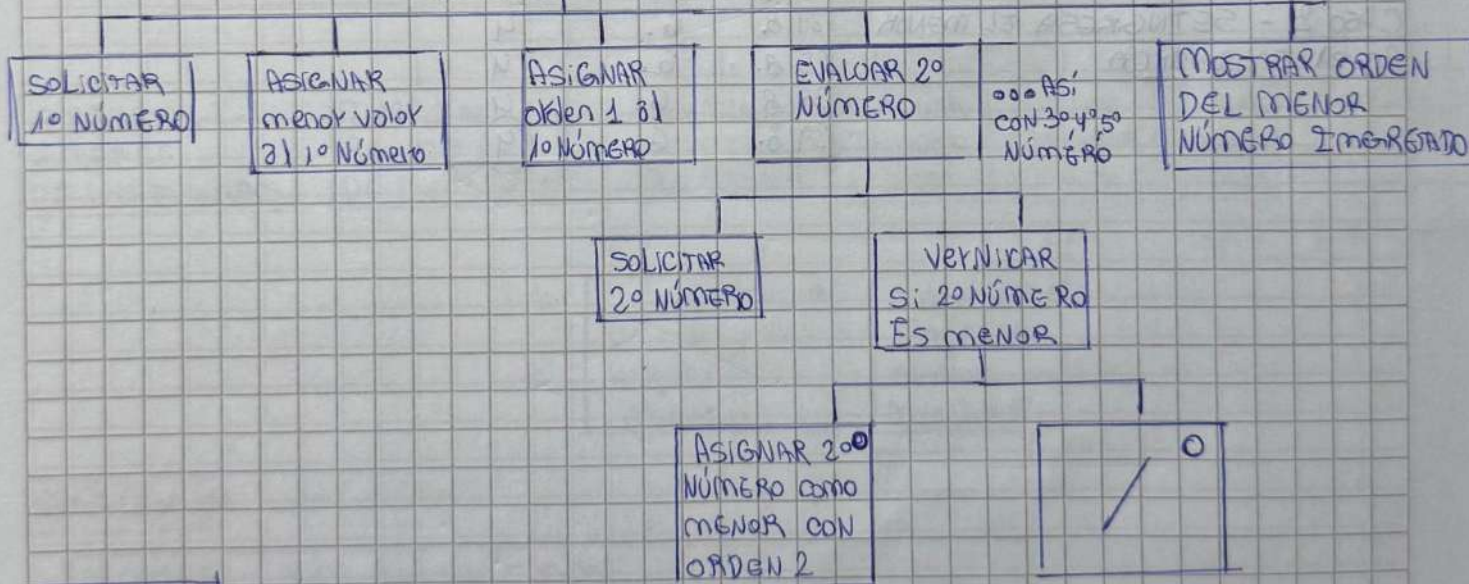 SOLICITAR
1º NÚMERO
ASIGNAR
menor valor
al 1º Número
ASIGNAR
orden 1 al
1º NÚMERO
EVALUAR 2º
NÚMERO
ooo ASÍ
CON 3º 4º 5º
NÚMERO
MOSTRAR ORDEN
DEL MENOR
NÚMERO INGRESADO
SOLICITAR
2º NÚMERO
VERIFICAR
Si 2º NÚMERO
ES MENOR
ASIGNAR 2º O
NÚMERO COMO
MENOR CON
ORDEN 2
O